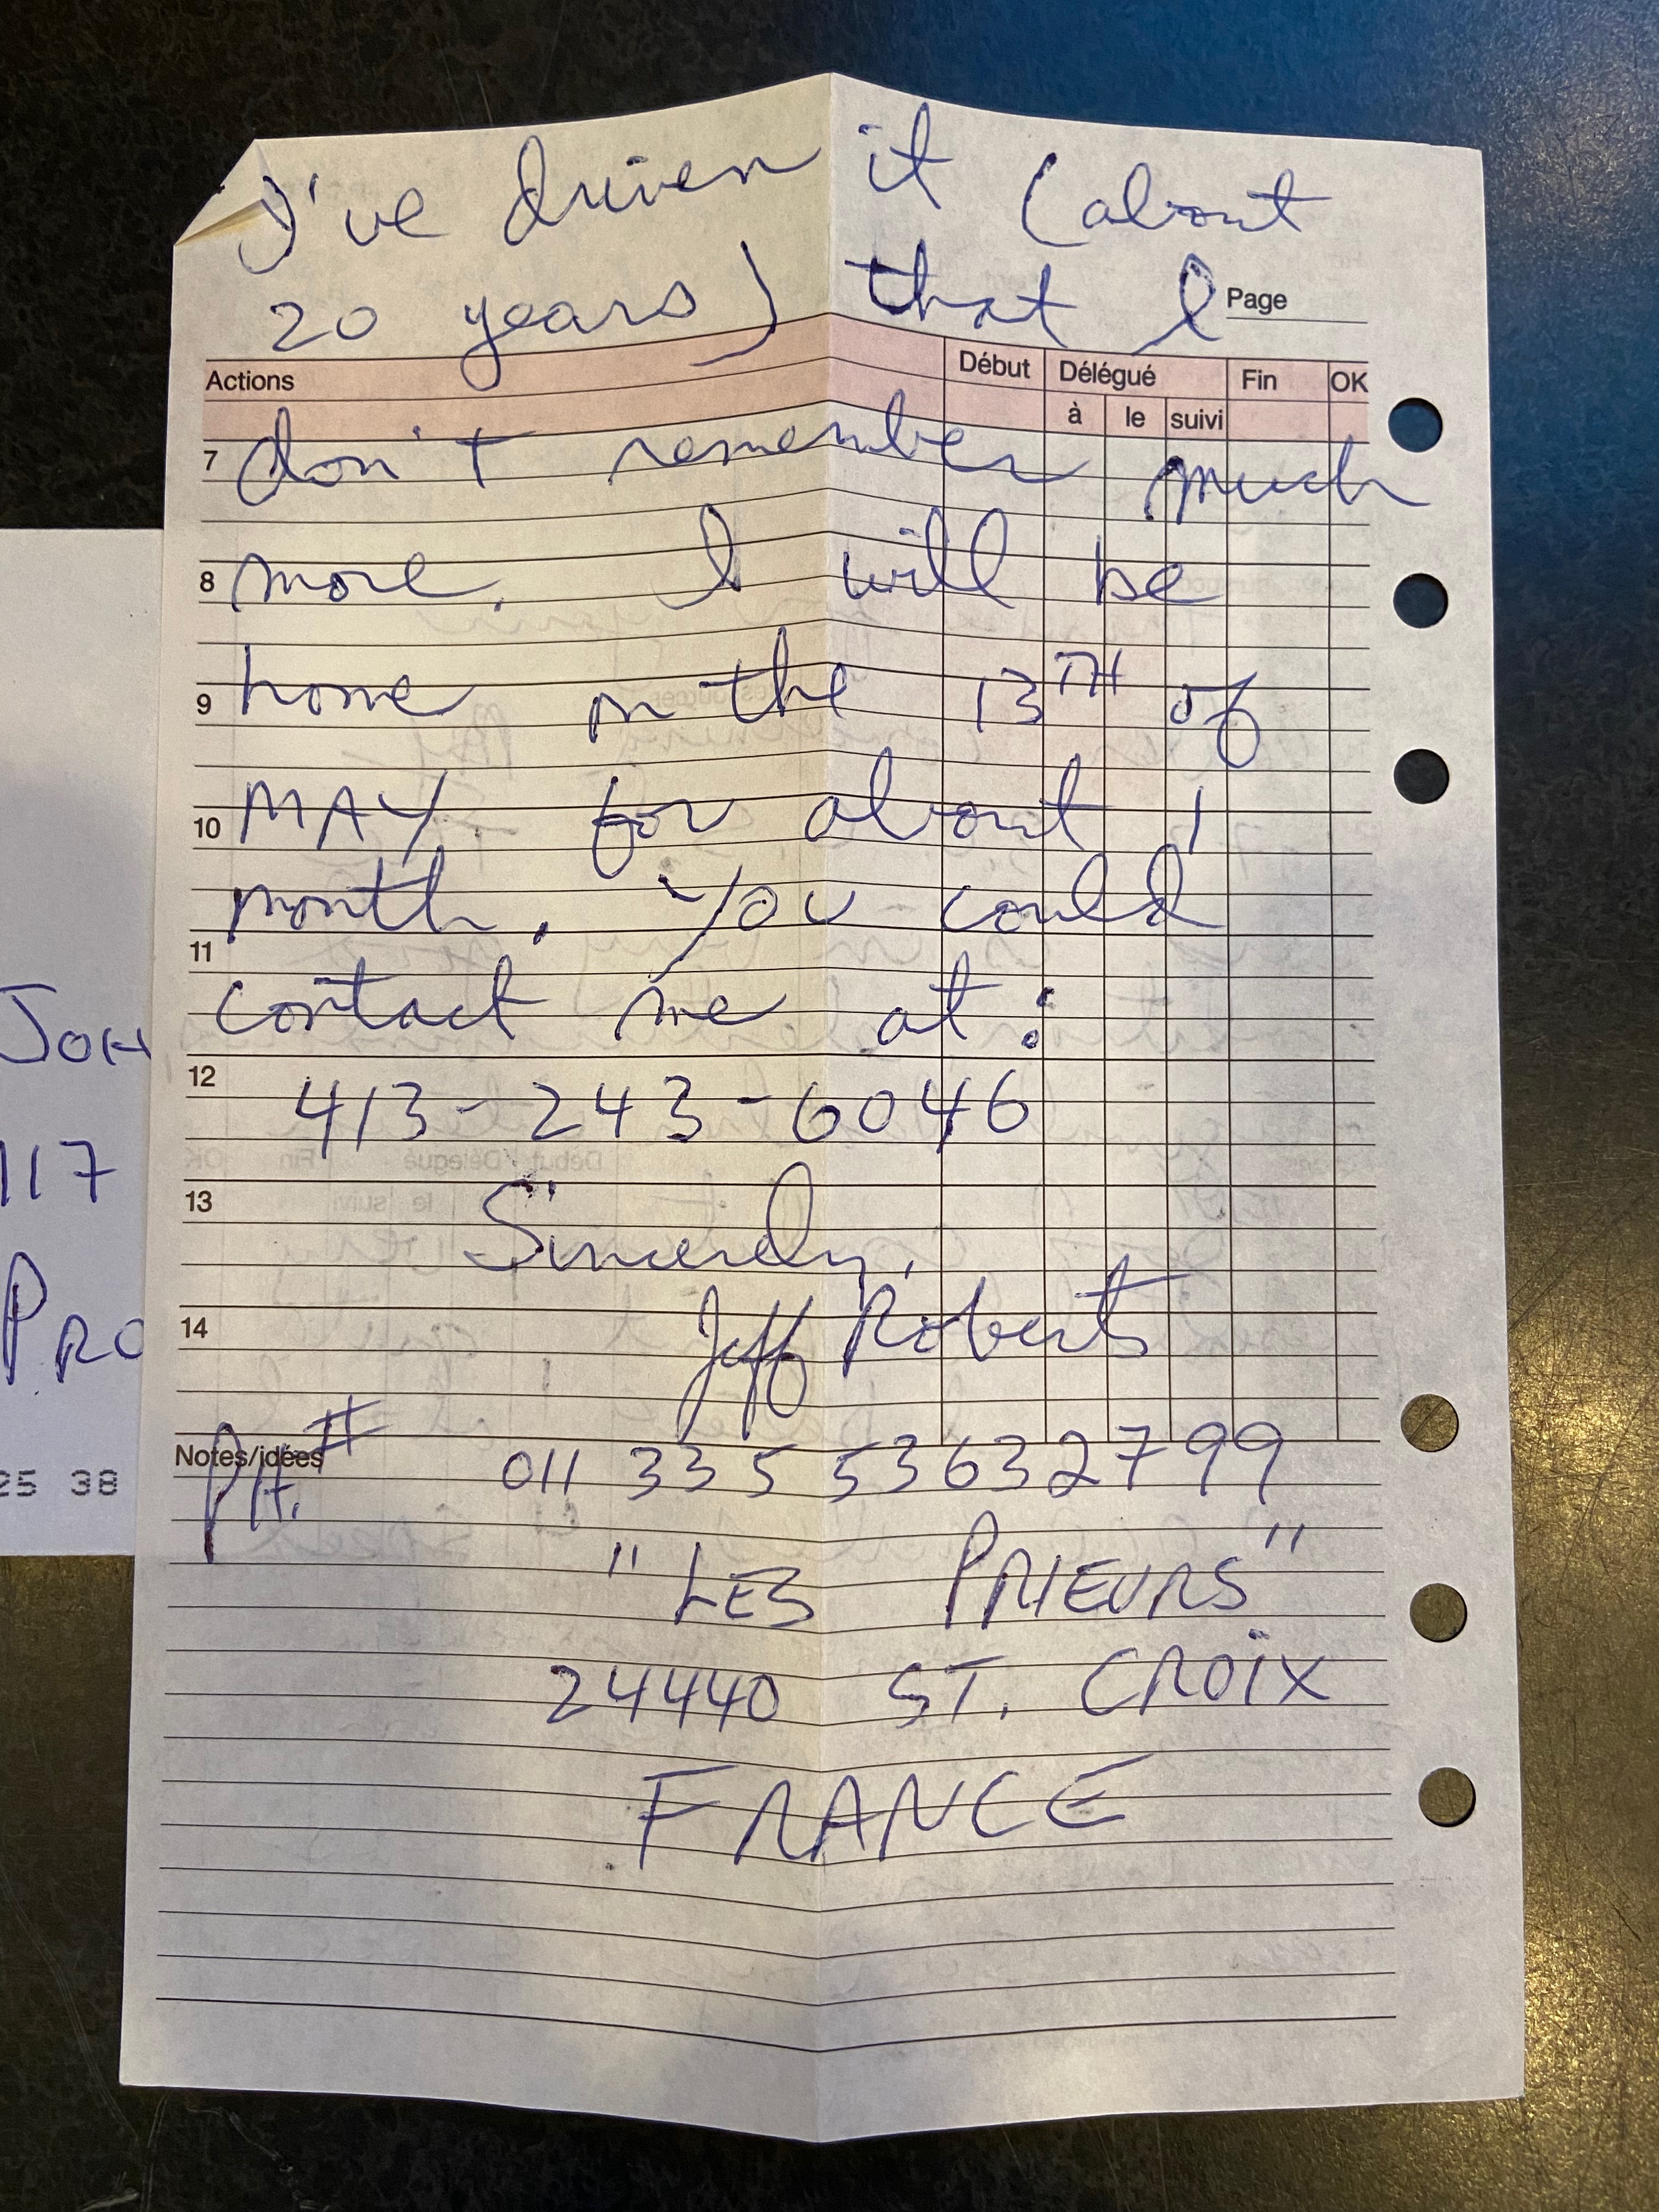 I've driven it (about
20 years) that I
Page
Actions Début Délégué Fin OK
à le suivi
7 don't remember much
8 more. I will be
9 home on the 13TH of
10 MAY for about 1
month. You could
11 contact me at:
12 413-243-6046
13 Sincerely,
14 Jeff Roberts
Notes/idées
PH.# 011 33 5 53632799
"LES PRIEURS"
24440 ST. CROIX
FRANCE
JOH
117
PRO
25 38